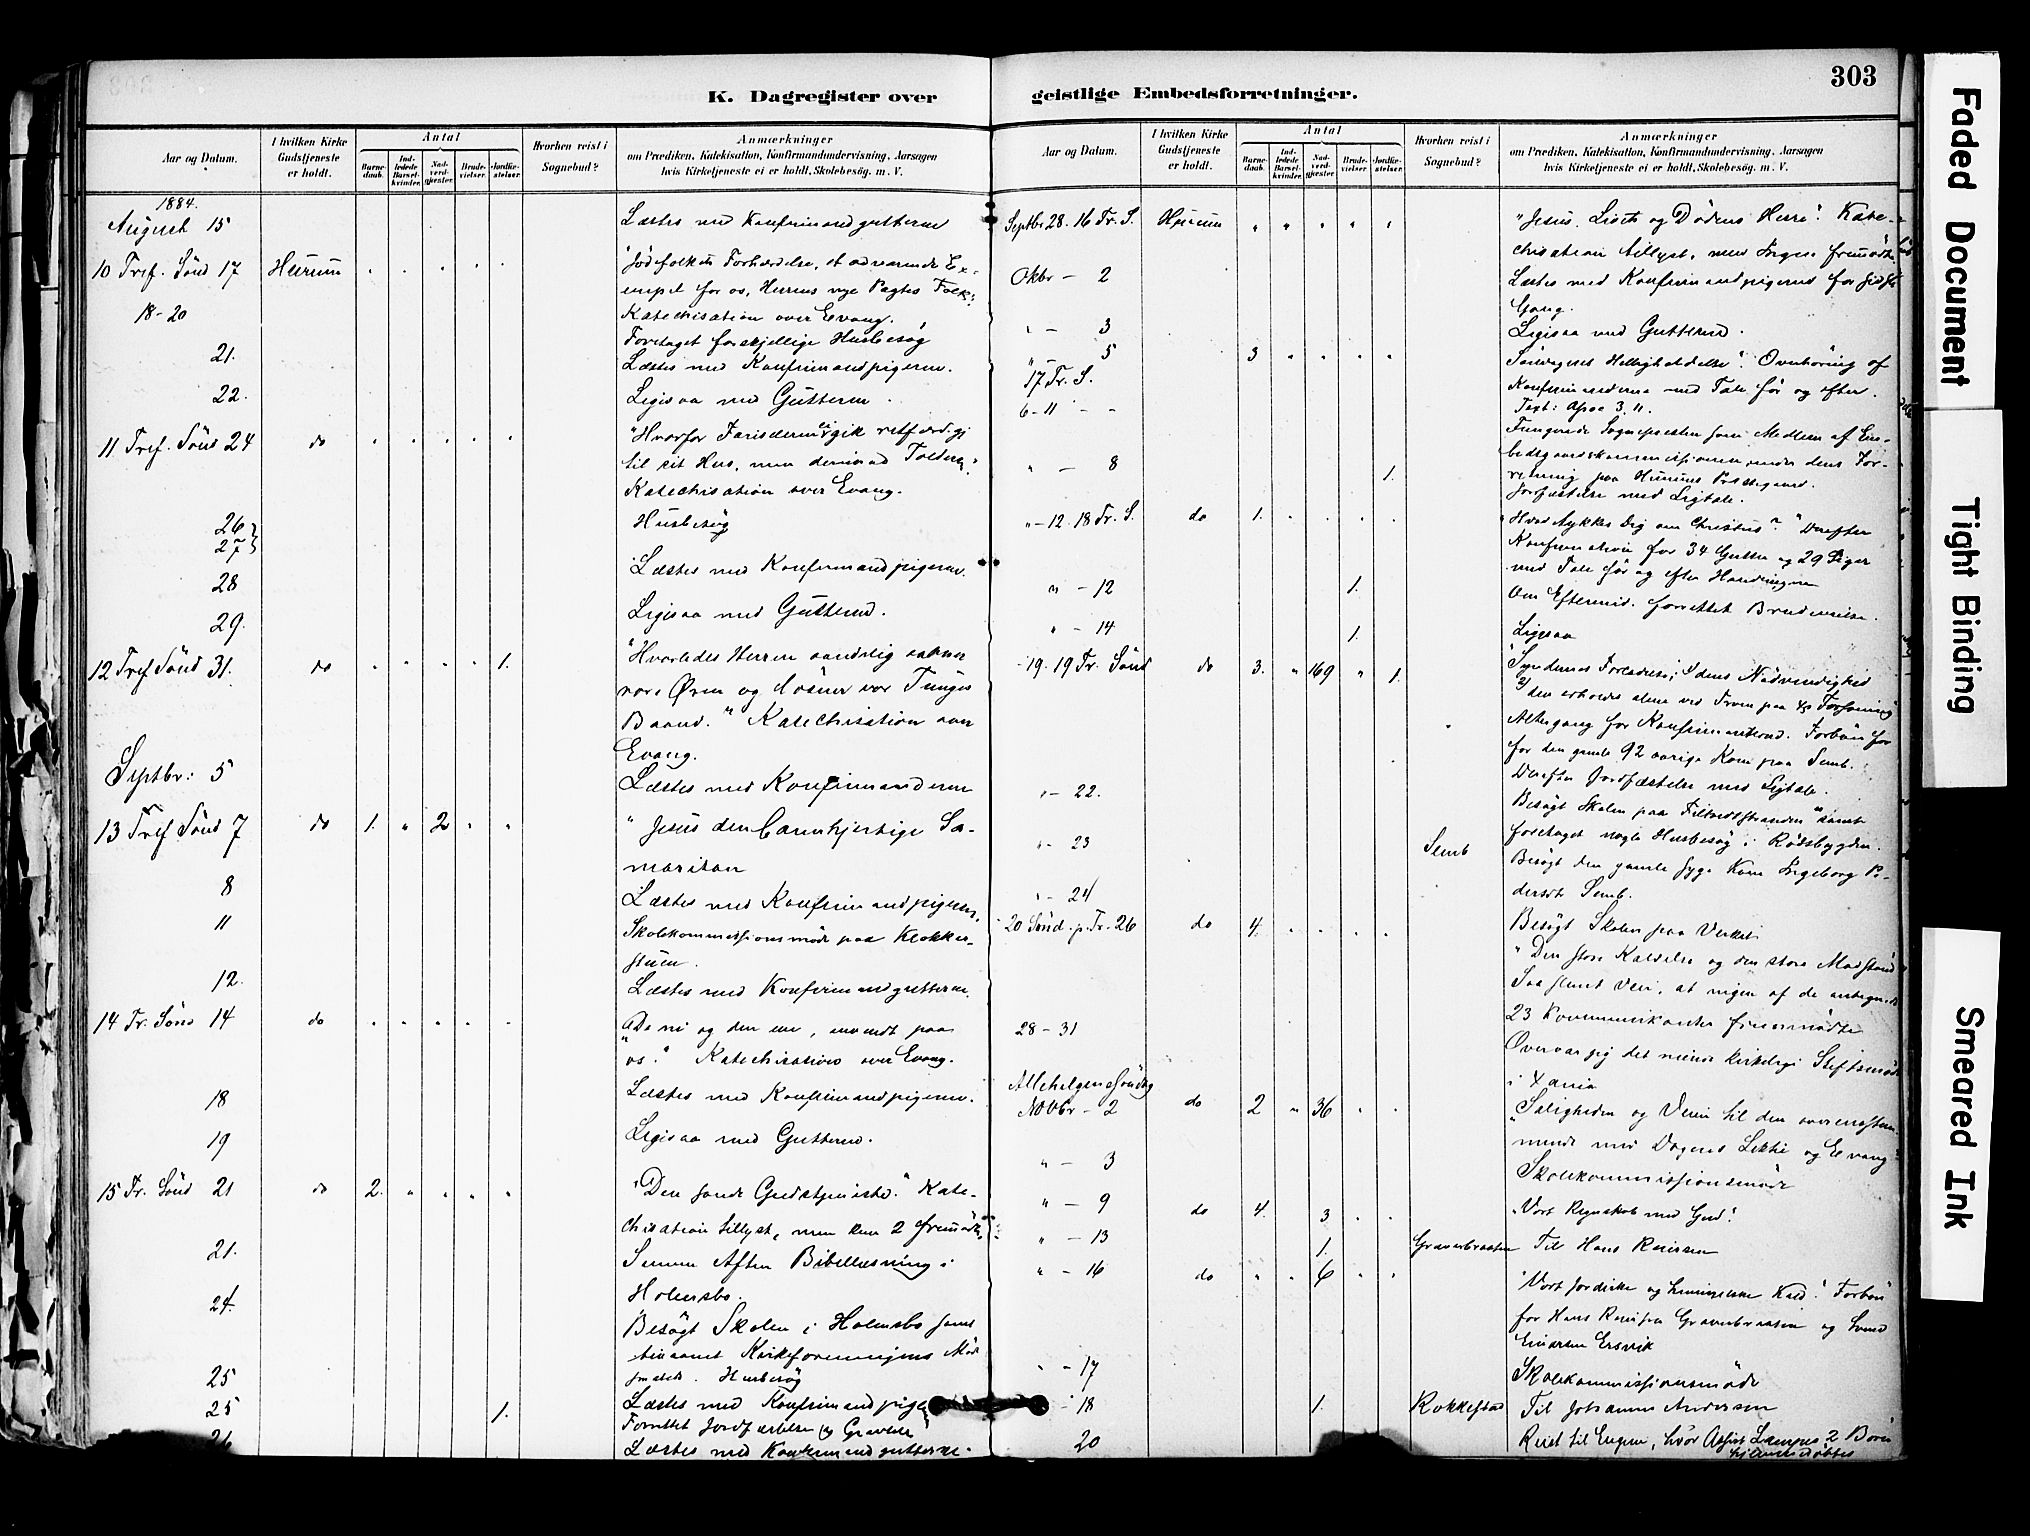 303
K. Dagregister over
geistlige Embedsforretninger.
Aar og Datum.
I hvilken Kirke Gudstjeneste er holdt.
Antal
Barnedaab.
Indledede Barselkvinder.
Nadverdgjester.
Brudevielser.
Jordfæstelser.
Hvorhen reist i Sognebud?
Anmærkninger
om Prædiken, Katekisation, Konfirmandundervisning, Aarsagen
hvis Kirketjeneste ei er holdt, Skolebesøg. m. V.
1884.
August 15 Læstes med Konfirmandgutterne
10 Tref. Sönd 17 Hurum "Jödefolkets Forhærdelse, et advarende Ex-
empel for os, Herrens nye Pagtes Folk."
Katechisation over Evang.
18-20 Foretaget forskjellige Husbesög
21. Læstes med Konfirmandpigerne.
22. Ligesaa med Gutterne
11 Tref. Sönd 24 do "Hvorfor Farisæeren ei gik retfærdig
til sit Hus, men derimod Tolderen."
Katechisation over Evang.
26
27 Husbesög
28 Læstes med Konfirmandpigerne.
29. Ligesaa med Gutterne.
12 Tref Sönd 31. do 1. "Hvorledes Herren aandelig aabner
vore Øren og löser vor Tunges
Baand." Katechisation over
Evang.
Septbr: 5 Læstes med Konfirmanderne
13 Tref Sönd 7 do 1. " 2 " " "Jesus den barmhjertige Sa-
maritan
8 Læstes med Konfirmandpigerne.
11 Skolekommissionsmöde paa Klokker-
stuen.
12. Læstes med Konfirmandgutterne.
14 Tr. Sönd 14 do "De ni og den ene, anvendt paa
os." Katechisation over Evang.
18 Læstes med Konfirmandpigerne.
19 Ligesaa med Gutterne.
15 Tr. Sönd 21 do 2. " " " " "Den sande Gudstjeneste." Kate-
chisation tillyst, men kun 2 fremmödte.
21. Samme Aften Bibellæsning i
Holmsbo.
24. Besögt Skolen i Holmsbo samt
Kirkeforeningens Möde
Husbesög
25 Læstes med Konfirmandpigerne
25 1. Forrettet Jordfæstelse
26 Læstes med Konfirmandgutterne.
Aar og Datum.
I hvilken Kirke Gudstjeneste er holdt.
Antal
Barnedaab.
Indledede Barselkvinder.
Nadverdgjester.
Brudevielser.
Jordfæstelser.
Hvorhen reist i Sognebud?
Anmærkninger
om Prædiken, Katekisation, Konfirmandundervisning, Aarsagen
hvis Kirketjeneste ei er holdt, Skolebesøg. m. V.
Septbr 28. 16 Tr. S. Hurum "Jesus, Livets og Dödens Herre". Kate-
chisation tillyst, men Ingen fremmödte.
Okbr - 2 Læstes med Konfirmandpigerne for sidste
Gang.
" - 3 Ligesaa med Gutterne.
" - 5 3 " " " " Söndagens Helligholdelse". Overhöring af
17 Tr. S. Konfirmanderne med Tale för og efter.
Text: Apoc 3, 11.
6-11 - - Fungerede Sognepresten som Medlem af Em-
bedsgaardskommissionen under dens For-
retning paa Hurums Prestegaard.
" - 8 1. Jordfæstelse med Ligtale.
" - 12. 18 Tr. S. do 1. "Hvad tykkes Dig om Christus?" Derefter
Konfirmation for 34 Gutter og 29 Piger
med Tale för og efter Handlingen
" - 12 1. Om Eftermid. forrettet Brudevielse.
" - 14 1. Ligesaa
19. 19 Tr. Sönd do 3. " 169 " 1. "Syndernes Forladelse; 1/ dens Nödvendighed
2/ den erholdes alene ved Troen paa Forsoning"
Altergang for Konfirmanterne. Forbön for
for den gamle 92 aarige Kone paa Semb.
Derefter Jordfæstelse med Ligtale.
" - 22. Besögt Skolen paa Filtvedtstranden samt
foretaget nogle Husbesög i Rödsbygden.
" - 23 Semb Besögt den gamle syge Kone Ingeborg Pe-
dersdt Semb.
" - 24 Besögt Skolen paa Verket
20 Sönd. p. Tr. 26 do 4. "Den store Kaldelse og den store Modstand
Saa slemt Veir, at ingen af de antegnede
23 Kommunikanter fremmödte
28 - 31 Overvar jeg det kirkelige Stiftsmöde
i Xania
Allehelgens Söndag
Novbr - 2 do 2 " 36 " " "Saligheden og Veien til den overensstem-
mende med Dagens Lektie og Evang."
" - 3 Skolekommissionsmöde
" - 9 do 4. 3 " " "Vort Regnskab med Gud."
" - 13 1. Graverbraaten Til Hans
" - 16 do " " 6 " " "Vort jordiske og himmelske Kald." Forbön
for Hans Graverbraaten og
Ersvik
" - 17 Skolekommissionsmöde
" - 18 1. Rokkestad Til Johannes Andersen
20 Reist til Engene, hvor 2 Börn
hjemmedöbtes
Faded Document
Tight Binding
Smeared Ink